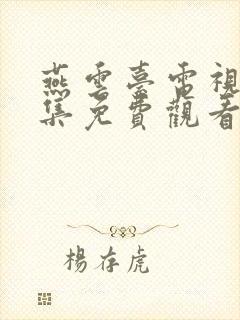 燕雲臺電視
集免費觀看
楊存虎